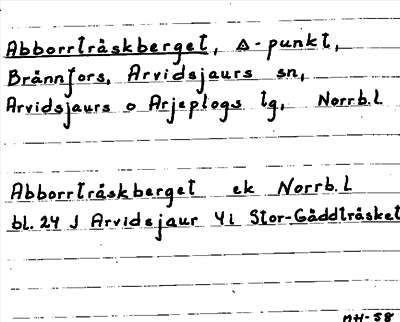 Abborrträskberget, △-punkt,
Brännfors, Arvidsjaurs sn,
Arvidsjaurs o Arjeplogs tg, Norrb.l.
Abborrträskberget ek Norrb.l
bl. 24 J Arvidsjaur 4i Stor-Gäddträsket
NH-58